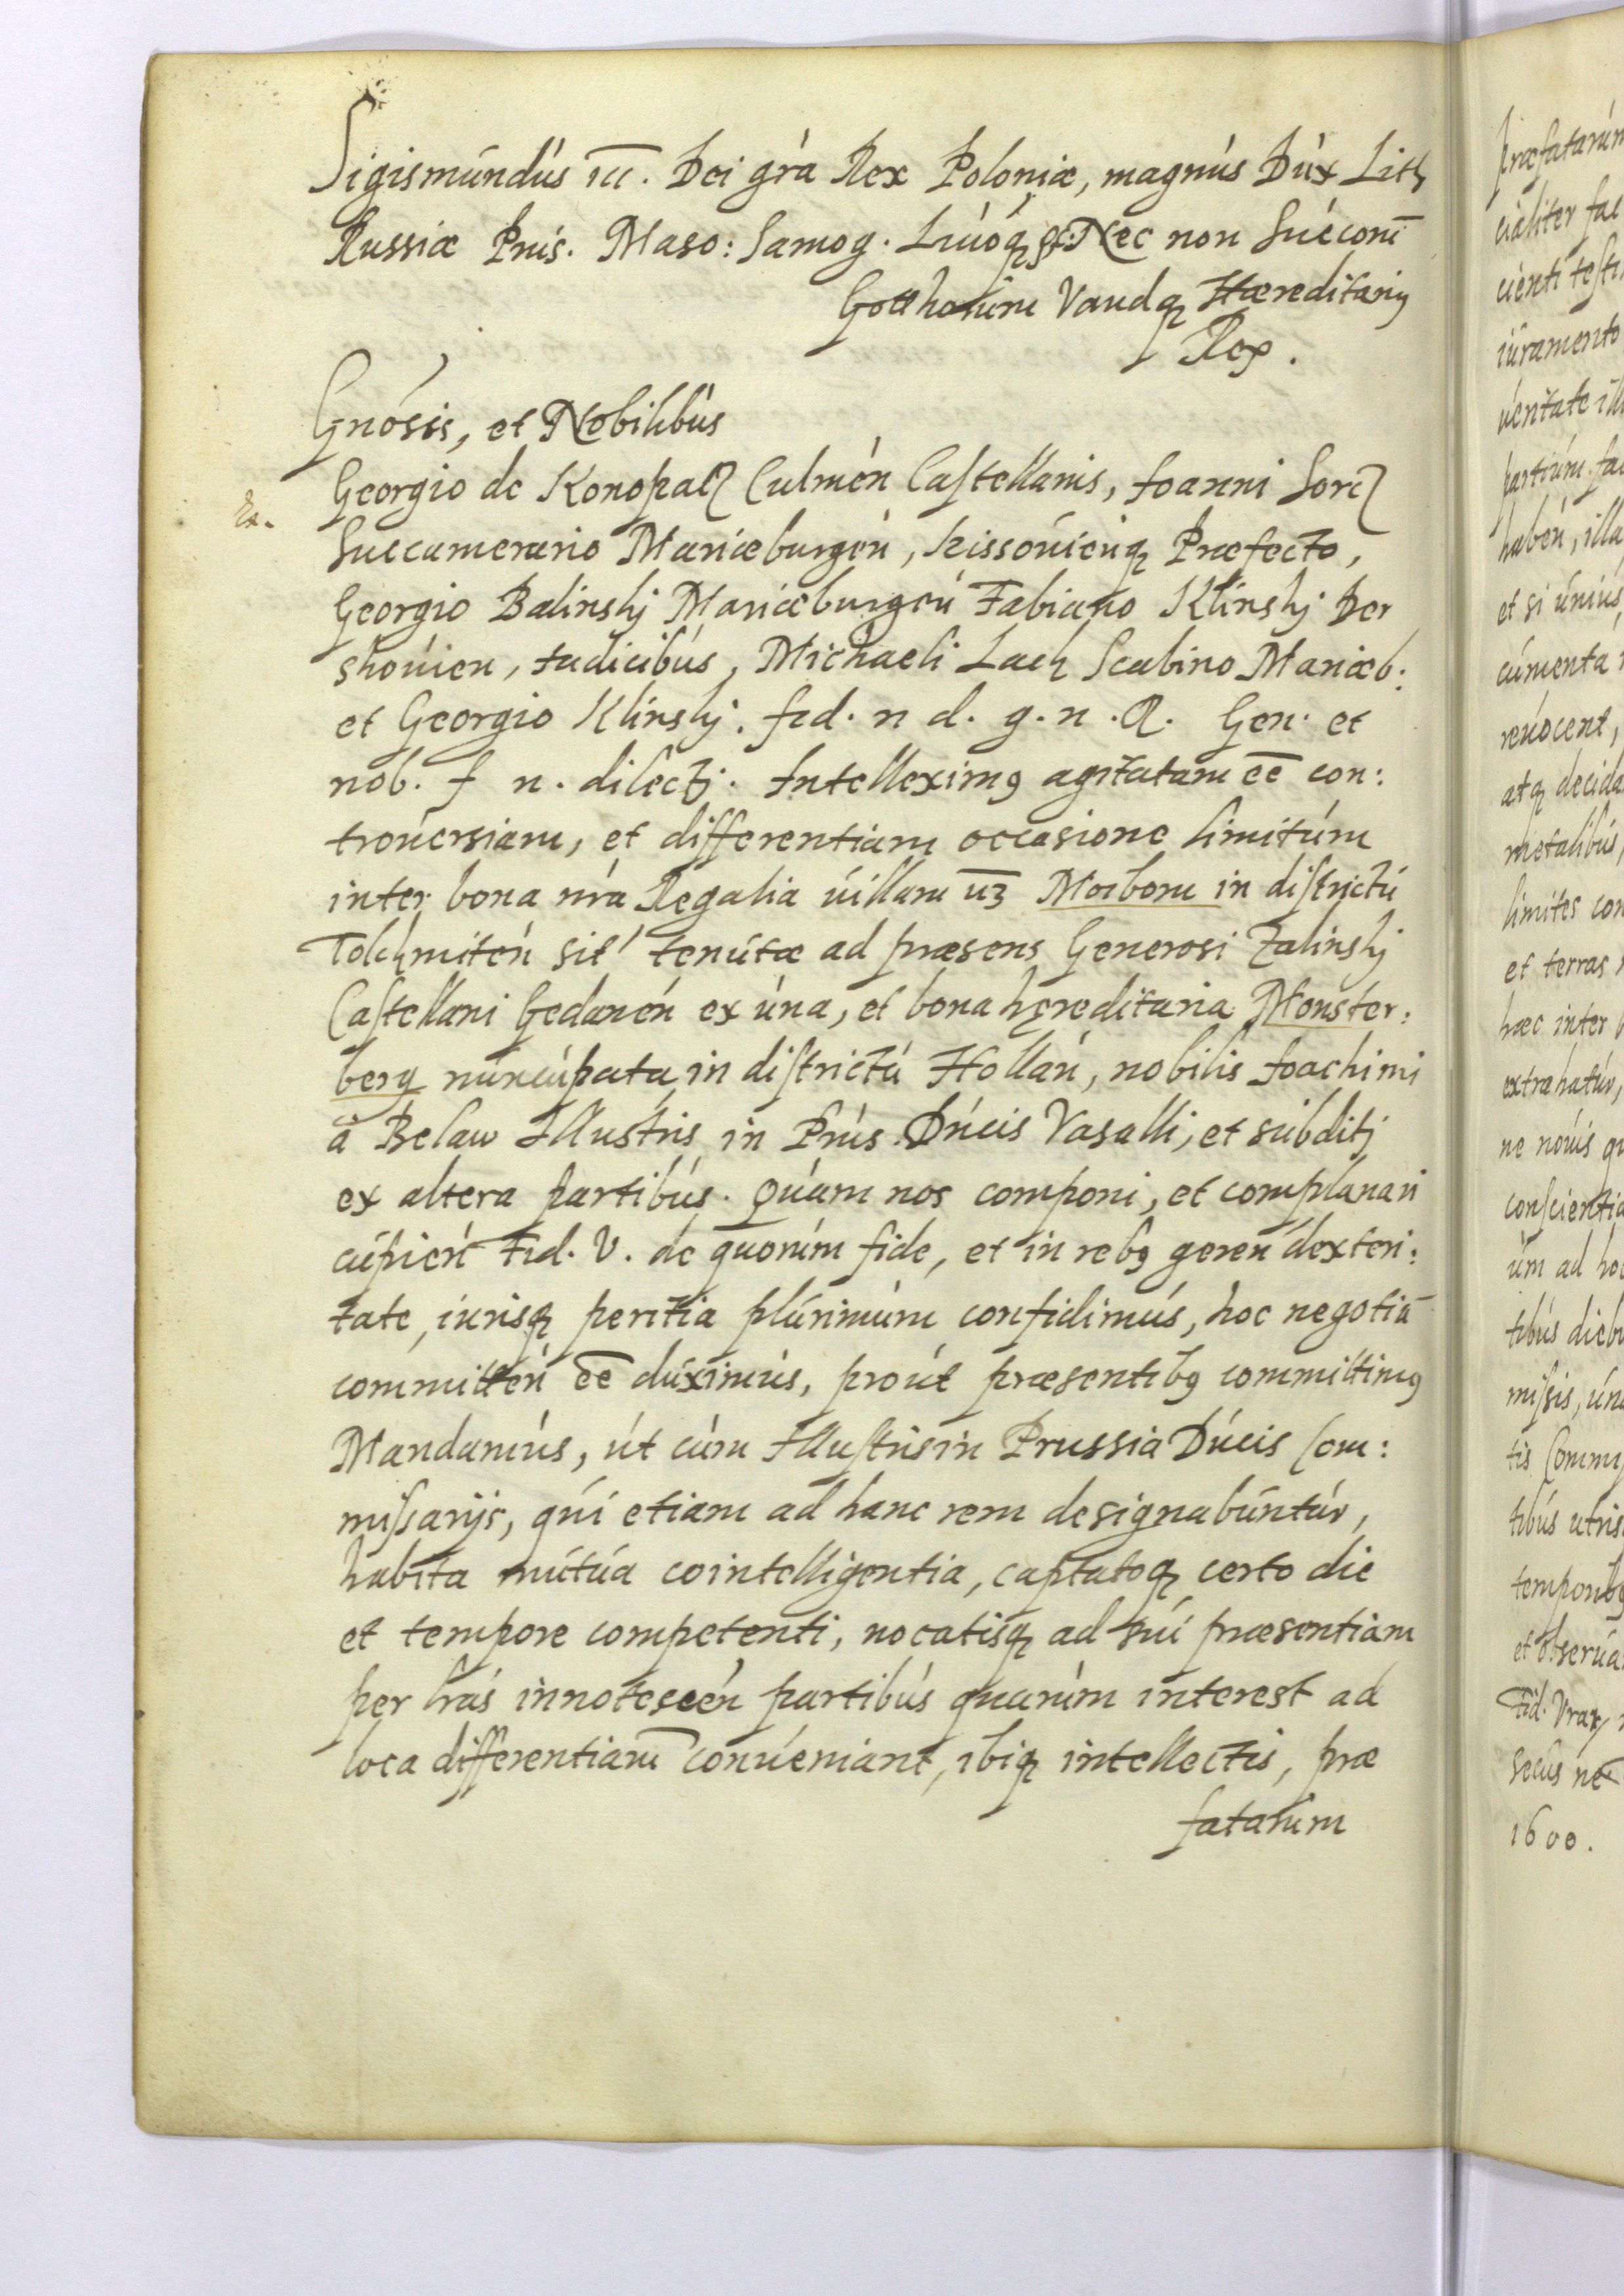 Sigismúndús III. Dei gra Rex Poloniæ, magnús Dúx Lith
Russiæ Prús. Maso: Samog. Livoq etc. Nec non Suecorū
Gotthorúm Vandq Hæreditariq
Rex.
Gnósis, et Nobilibús
Georgio de Konopath Culmén Castellanis, Joanni
Succamerario Mariæburgén, Kissóúienq Præfecto,
Georgio Balinskj Mariæburgén Fabiano Klinskj Der
shoúien, Judicibús, Michaeli Lach Scabino Mariæb:
et Georgio Klinskj. fid. n d. g. n. R. Gen. et
nob. f n. dilectj. Intelleximq agitatam eē con:
troúersiam, et differentiam occasione limitúm
inter bona nra Regalia úillam uz Morbom in districtú
Tolchmitén sit' tenútæ ad præsens Generosi Zalinskj
Castellani Gedanén ex úna, et bona hęreditaria Monster:
berg núncúpata in districtú Hollán, nobilis Joachimi
à Belaw Illustris in Prús. Dúcis Vasalli, et súbditj
ex altera partibús. Qúam nos componi, et complanari
cúpién Fid. V. de quorúm fide, et in rebq geren dexteri:
tate, iurisq peritia plúrimúm confidimús, hoc negotiū
committén eē dúximús, proút præsentibq committimq
Mandamús, út cúm Illustris in Prussia Dúcis Com:
missarijs, qúi etiam ad hanc rem designabúntúr,
habita mútúa cointelligentia, captatoq certo die
et tempore competenti, vocatisq ad súi præsentiam
per lrás innotescén partibús quarúm interest ad
loca differentiarū conúeniant, ibiq intellectis, præ
fatarúm
præfatarúm
cialiter fac
cienti testi
iúramento
úeritate ill
partiúm fa
habén, illa
et si úniús
cúmenta
reúocent,
atq decida
metalibús,
limites con
et terras
hæc inter
extrahatúr,
ne noúis qu
conscientia
úm ad ho
tibús diebu
missis, úna
tis Commi
tibús utris
temporibq
et obserúa
Fid. Vrar,
Secús nē
1600.